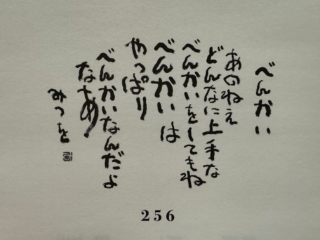 べんかい
あのねえ
どんなに上手な
べんかいをしてもね
べんかいは
やっぱり
べんかいなんだよ
なあ
みつを
256